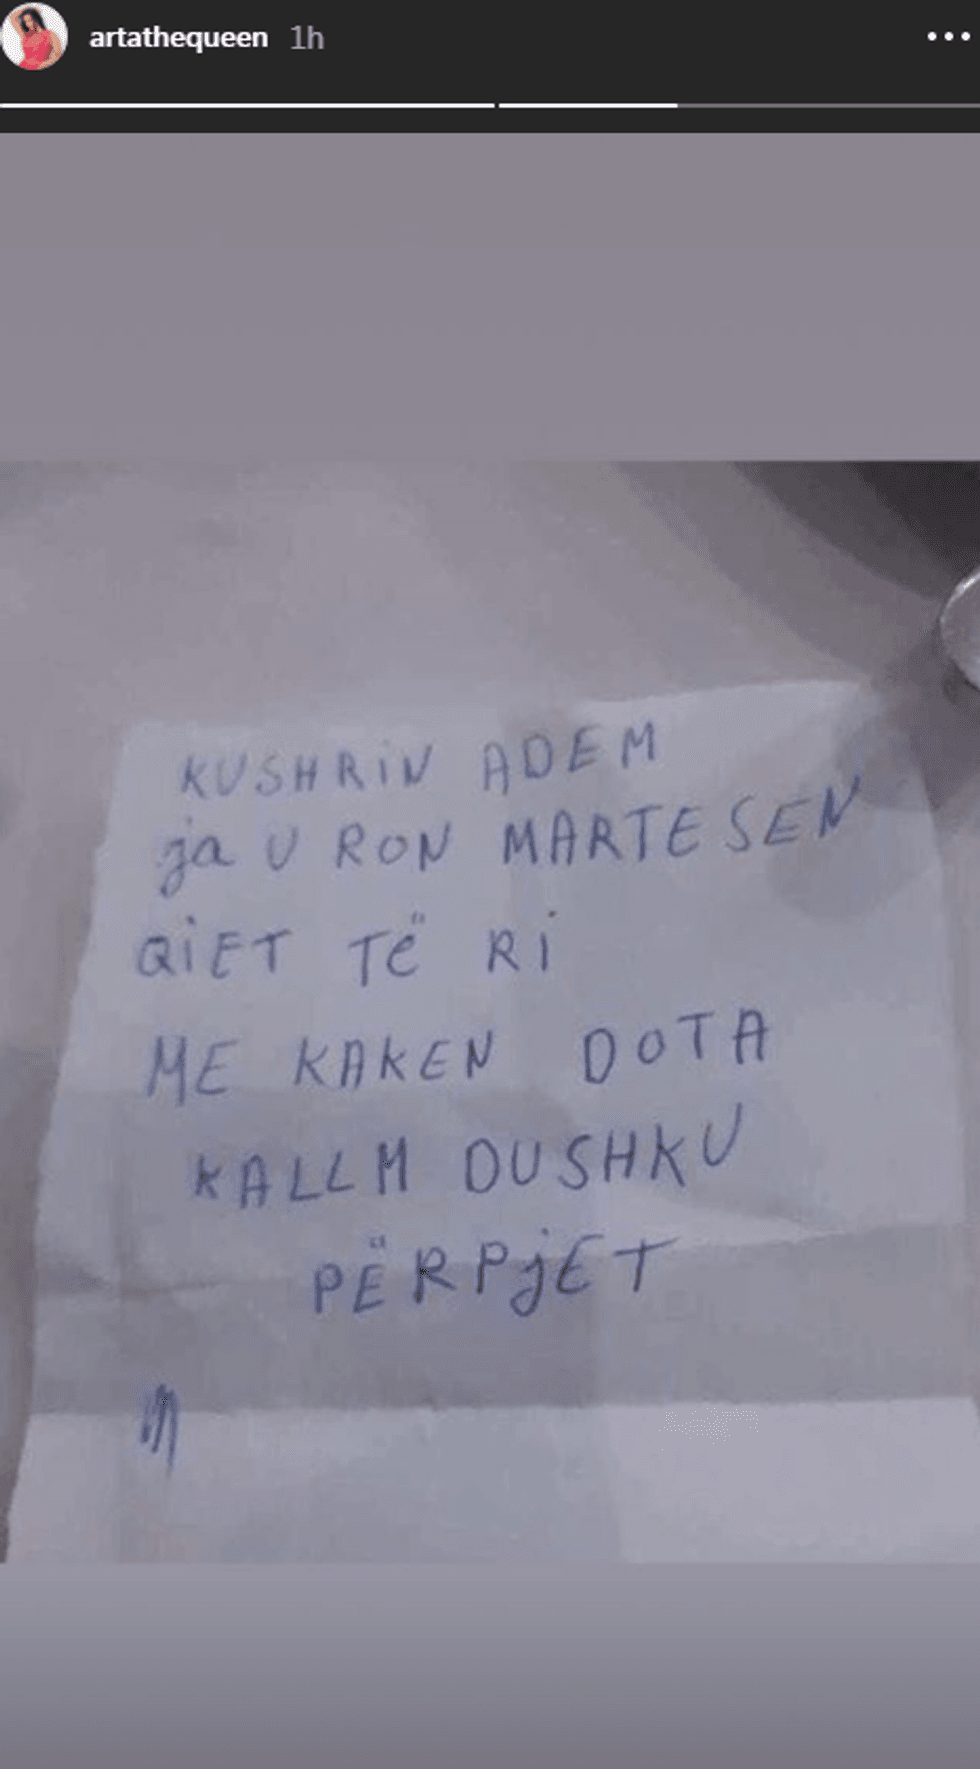 artathequeen 1h
KUSHRIN ADEM
ja U RON MARTESEN
QIET TË RI
ME KAKEN DOTA
KALLM DUSHKU
PËRPJET